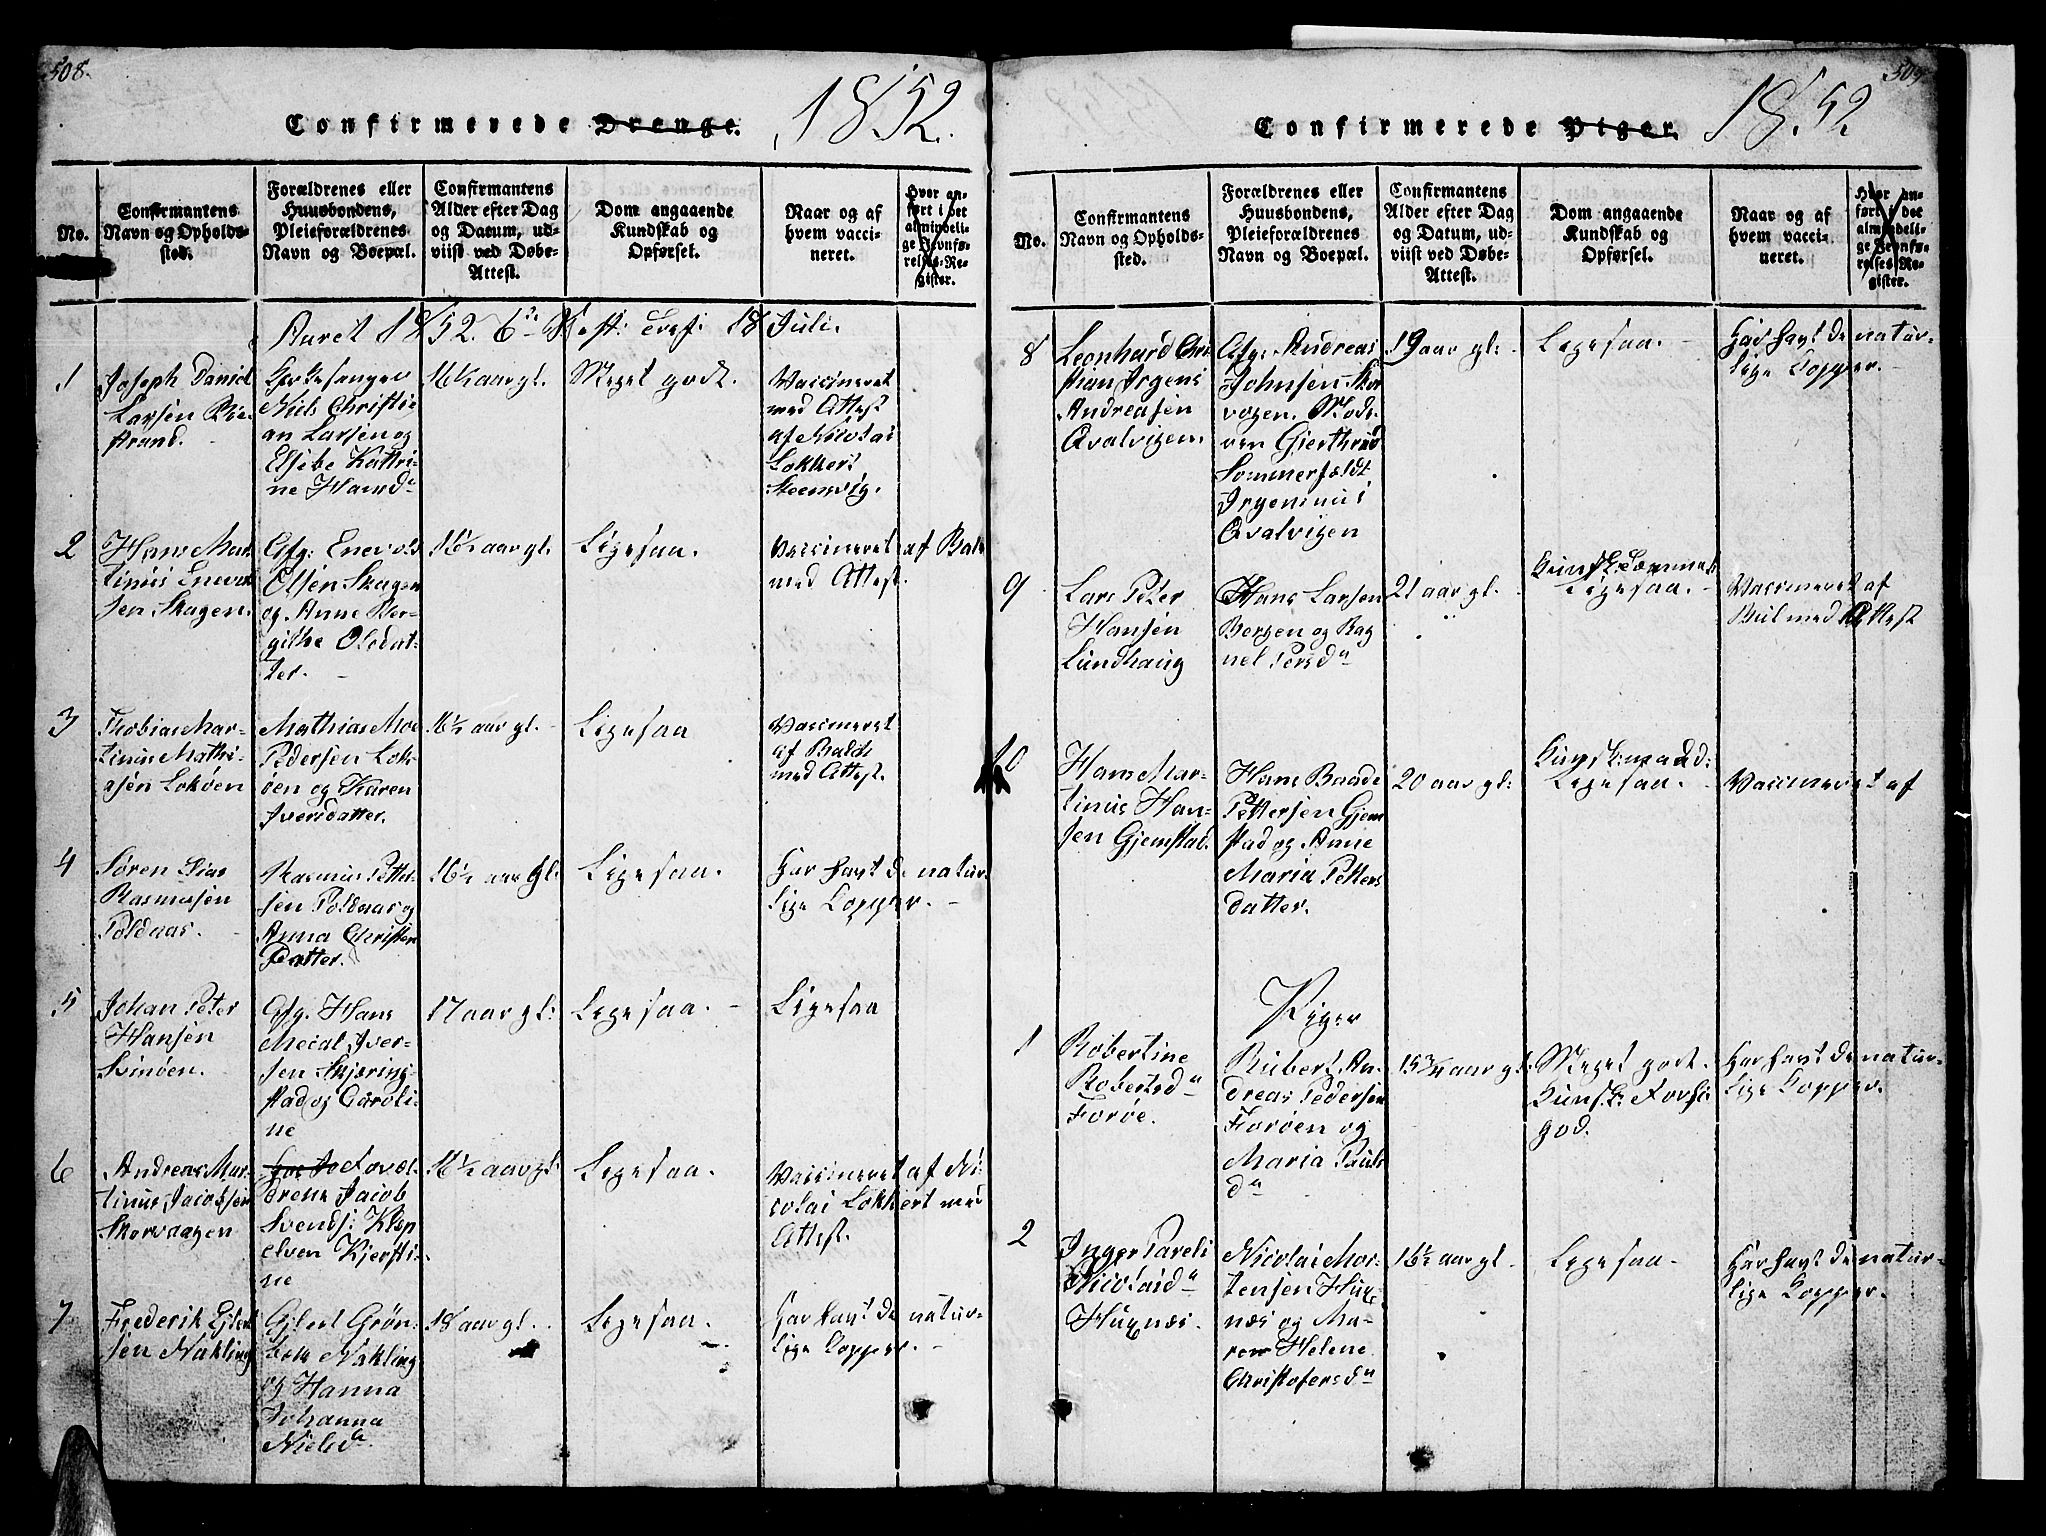 508.
Confirmerede Drenge. 1852.
No.
Confirmantens
Navn og Opholds-
sted.
Forældrenes eller
Huusbondens,
Pleieforældrenes
Navn og Boepæl.
Confirmantens
Alder efter Dag
og Datum, ud-
viist ved Døbe-
Attest.
Dom angaaende
Kundskab og
Opførsel.
Naar og af
hvem vacci-
neret.
Hvor an-
ført i det
almindeli-
ge Jevnfø-
relses-Re-
gister.
Aaret 1852. 18 Juli.
1
Joseph Daniel
Larsen
strand.
Kirkesanger
Niels Christi-
an Larsen og
Elsebe Kathri-
ne Hansd
16½ aar gl.
Meget godt.
Vaccineret
med Attest
af Nicolai
Lokkert
Steensvig.
2
Hans Mar
tinus Enevol
sen Skagen.
Gfg: Enevold
Olsen Skagen
og Anne Ber-
githe Olsdat-
ter.
16½ aar gl.
Ligesaa.
Vaccineret af
med Attest.
3
Tobias Mar-
tinus Mathi-
asen Lokøen
Mathias Moe
Pedersen Lok-
øen og Karen
Iversdatter.
16½ aar gl.
Ligesaa
Vaccineret
af
med Attest.
4
Søren
Rasmusen
Poldnas.
Rasmus Petter-
sen Poldnas og
Anna Christen
Datter.
16½ aar gl.
Ligesaa.
Har havt de natur-
lige Kopper.
5
Johan Peter
Hansen
Svinøen.
Gfg. Hans
Meidal Iver-
sen Skjæring-
stad og Caroli-
ne
17 aar gl:
Ligesaa.
Ligesaa
6
Andreas Mar-
tinus Jacobsen
Skorvaagen
Foræl-
drene Jacob
Svends: Klep
elven Kjersti-
ne
16½ aar gl:
Ligesaa.
Vaccineret af Ni-
colai Lokkert med
Attest.
7
Frederik Eilert
sen Nakling
Eilert Grøn-
bek Nakling
og Hanna
Johanna
Nielsd.
18 aar gl.
Ligesaa.
Har havt de natur-
lige Kopper.
509
Confirmerede Piger. 1852
No.
Confirmantens
Navn og Opholds-
sted.
Forældrenes eller
Huusbondens,
Pleieforældrenes
Navn og Boepæl.
Confirmantens
Alder efter Dag
og Datum, ud-
viist ved Døbe-
Attest.
Dom angaaende
Kundskab og
Opførsel.
Naar og af
hvem vacci-
neret.
Hvor an-
ført i det
almindeli-
ge Jevnfø-
relses-Re-
gister.
8
Leonhard Chri
stian Irgens
Andreasen
Qvalvigen.
Gfg: Andreas
Johnsen Skor
vogen. Mode-
ren Gjerthrud
Sommerfeldt
Irgens i
Qvalvigen
19 aar gl:
Ligesaa.
Har havt de natur-
lige Kopper.
9
Lars Peter
Hansen
Lundhaug
Hans Larsen
Bergen og Rag
nel Persd
21 aar gl.
Ligesaa.
Vaccineret af
Buil med Attest
10
Hans Mar-
tinus Han-
sen Gjemstad.
Hans Baade
Pettersen Gjem
stad og Anne
Maria Petters
datter.
20 aar gl:
Kunsk: maad:
Ligesaa.
Vaccineret af
Piger
1
Robertine
Robertsd
Forøe.
Rubert An-
dreas Pedersen
Forøen og
Maria Pauls
d
15¾ aar gl:
Meget godt.
Kunsk: Forsl:
god.
Har havt de natur-
lige Kopper.
2
Inger Pareli
Nicolaid
Hugnæs.
Nicolai Mor-
tensen Hug-
næs og Ma-
ren Helene
Christofersd
16½ aar gl.
Ligesaa.
Har havt de natur-
lige Kopper.